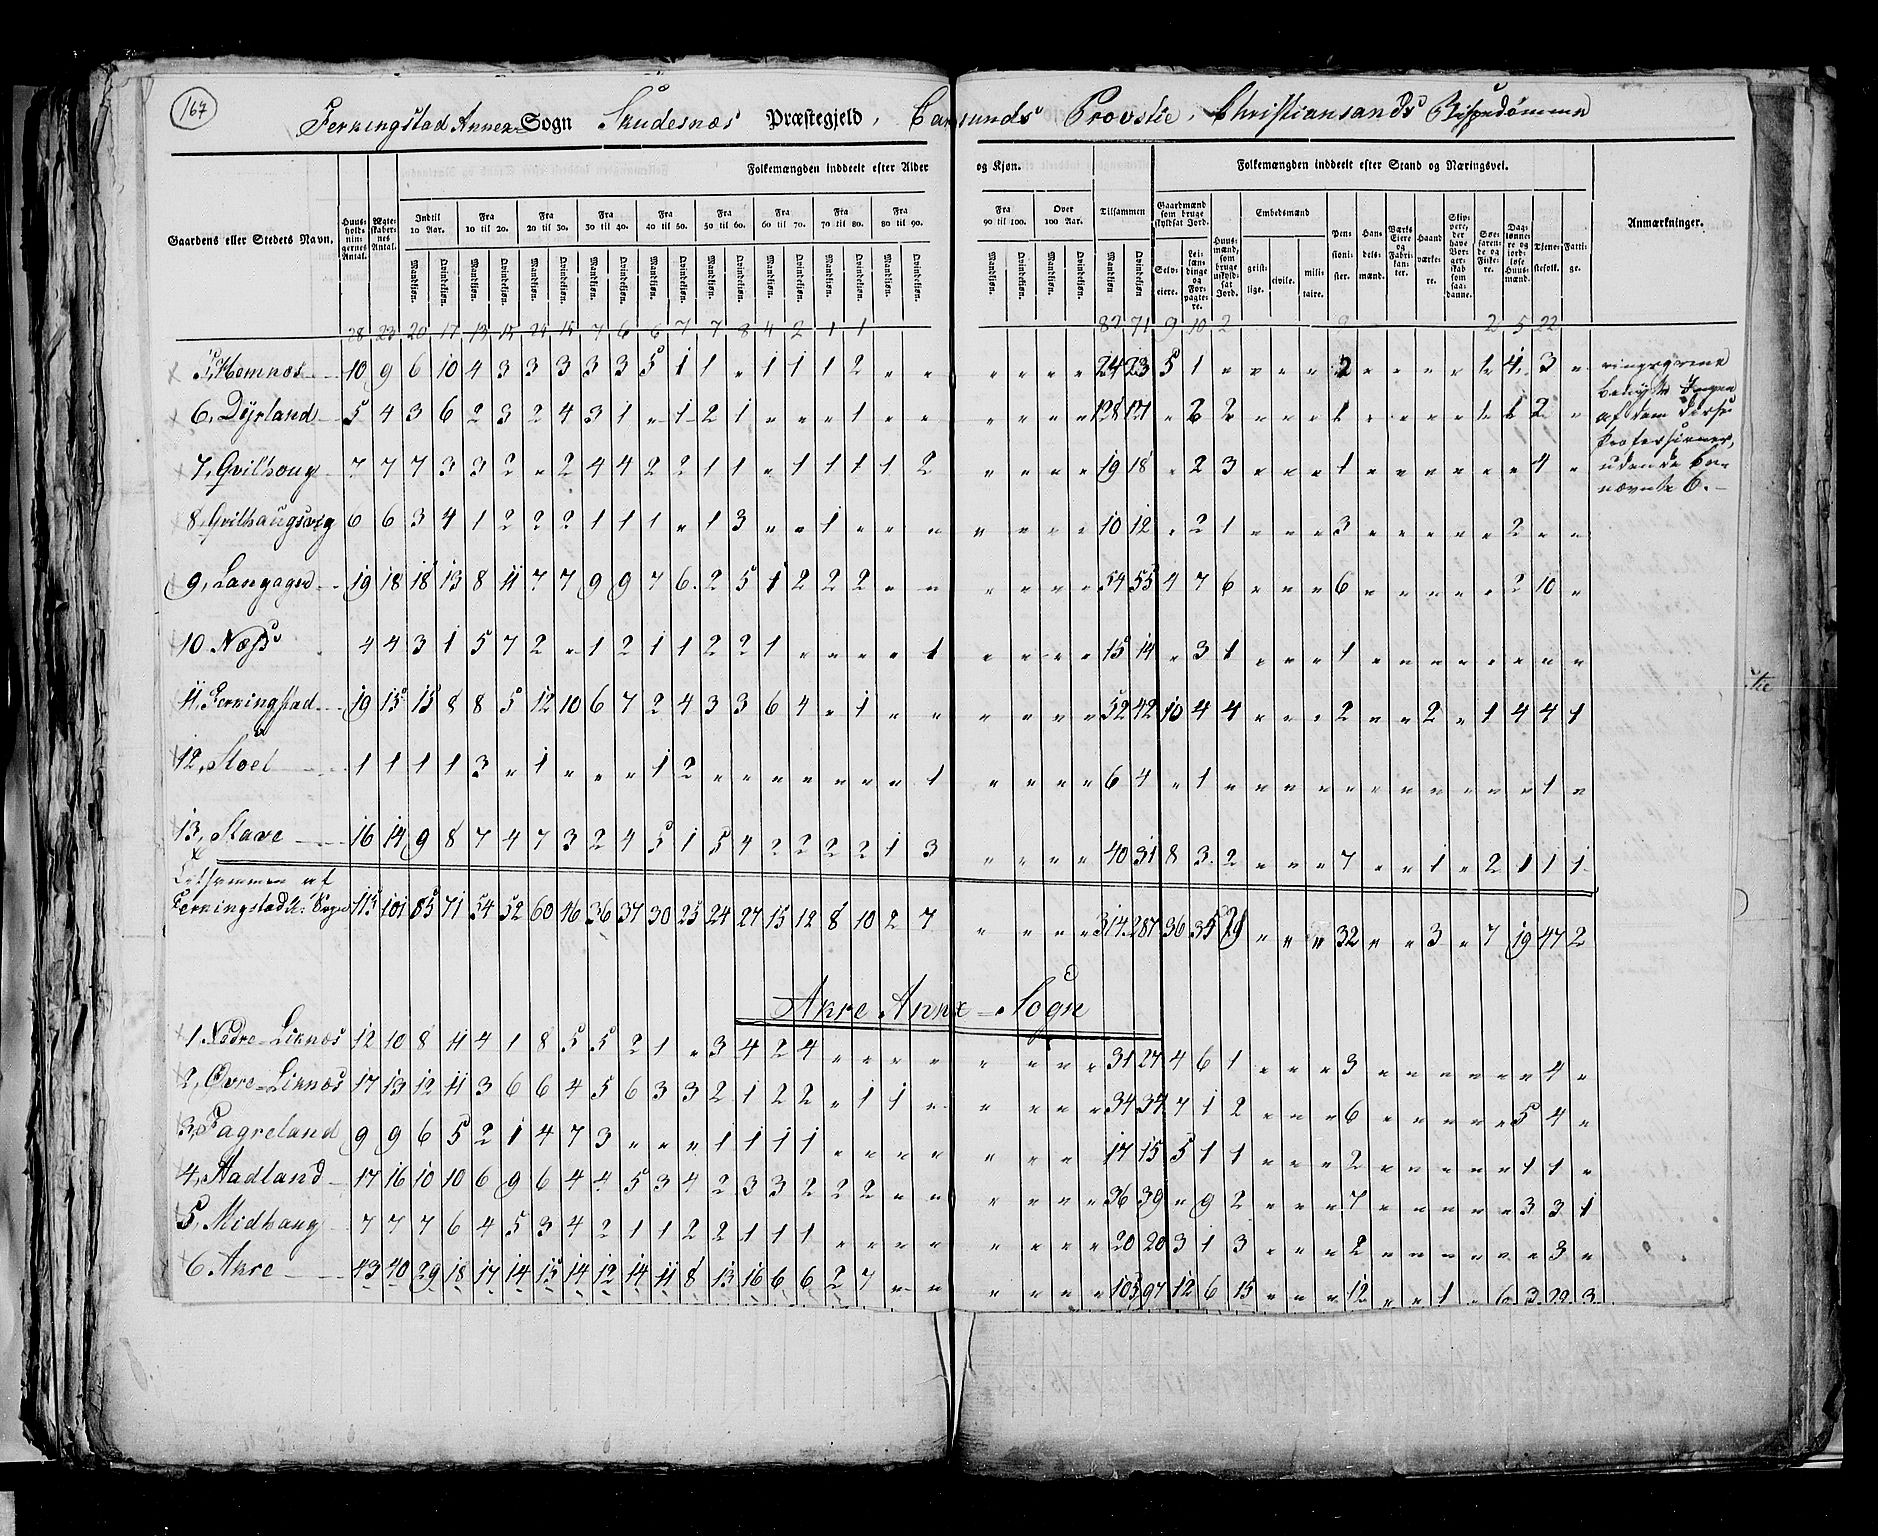 167
Ferkingstad Annex Sogn Skudesnæs Præstegjeld, Carmunds Provstie, Christiansands Bispedømme
Folkemængden inddeelt efter Alder og Kjøn. Folkemængden inddeelt efter Stand og Næringsvei.
Gaardens eller Stedets Navn. Huusholdningernes Antal. Ægteskabernes Antal. Indtil 10 Aar. Fra 10 til 20. Fra 20 til 30. Fra 30 til 40. Fra 40 til 50. Fra 50 til 60. Fra 60 til 70. Fra 70 til 80. Fra 80 til 90. Fra 90 til 100. Over 100 Aar. Tilsammen Gaardmænd som bruge skyldsat Jord. Huusmænd, som bruge uskyldsat Jord. Embedsmænd Pensionister. Handelsmænd. Værks Eiere og Fabrikanter. Haandværkere. Skippere, der have Borgerskab som saadanne. Søefarende og Fiskere. Daglønnere og jordløse Huusmænd. Tjenestefolk. Fattige. Anmærkninger.
Mandkjøn. Qvindekjøn. Mandkjøn. Qvindekjøn. Mandkjøn. Qvindekjøn. Mandkjøn. Qvindekjøn. Mandkjøn. Qvindekjøn. Mandkjøn. Qvindekjøn. Mandkjøn. Qvindekjøn. Mandkjøn. Qvindekjøn. Mandkjøn. Qvindekjøn. Mandkjøn. Qvindekjøn. Mandkjøn. Qvindekjøn. Mandkjøn Qvindekjøn Selveiere. Leilændinge og Forpagtere. geistlige. civile. militaire.
28 23 20 17 13 15 24 15 7 6 6 7 7 8 4 2 1 1 82 71 9 10 2 2 5 22
5, Hemnæs 10 9 6 10 4 3 3 3 3 3 5 1 1 " 1 1 1 2 " " " " " " 24 23 5 1 " " " " 2 " " " " 1 4 3 "
6, Dÿrland 5 4 3 6 2 3 2 4 3 1 " 1 2 1 " " " 1 " " " " " " " 2 2 " " " 1 " " " " 1 1 2 "
7, Qvilhoug 7 7 7 3 3 2 " 2 4 4 2 2 1 1 " 1 1 1 1 2 " " " " 19 18 " 2 3 " " " 1 " " " " " " 4 "
8, Qvilhaugsvig 6 6 3 4 1 2 2 2 1 1 1 " 1 3 " " 1 " " " " " " " 10 12 " 2 1 " " " 3 " " " " " 2 " "
9, Langager 19 18 18 13 8 11 7 7 9 9 7 6 2 5 1 2 2 2 " " " " " " 54 55 4 7 6 " " " 6 " " " " " 2 10 "
10 Næss 4 4 3 1 5 7 2 " 1 2 1 1 2 2 1 " " " " 1 " " " " 15 14 " 3 1 " " " 1 " " " " " " " "
11, Ferkingstad 19 15 15 8 8 5 12 10 6 7 2 4 3 3 6 4 " 1 " " " " " " 52 42 10 4 4 " " " 2 " " 2 " 1 4 4 1
12, Stoel 1 1 1 1 3 " 1 " " " 1 2 " " " " " " " 1 " " " " 6 4 " 1 " " " " " " " " " " " 1 "
13, Stave 16 14 9 8 7 4 7 3 2 4 5 1 5 4 2 2 2 2 1 3 " " " " 40 31 8 3 2 " " " 7 " " 1 " 2 1 1 1
Tilsammen af
Ferkingstad A: Sogn 115 101 85 71 54 52 60 46 36 37 30 25 24 27 15 12 8 10 2 7 " " " " 314 287 36 35 29 " " " 32 " " 3 " 7 19 47 2
Akre Annex Sogn
1, Nedre-Liknæs 12 10 8 11 4 1 8 5 5 2 1 " 3 4 2 4 " " " " " " " " 31 27 4 6 1 " " " 3 " " " " " " 4 "
2, Øvre-Liknæs 17 13 12 11 3 6 6 4 5 6 3 3 2 1 2 2 " 1 1 " " " " " 34 34 7 1 2 " " " 6 " " " " " 5 4 "
3, Fagreland 9 9 6 5 2 1 4 7 3 " " " 1 1 1 1 " " " " " " " 17 15 5 1 1 " " " 2 " " " " " 1 1 "
4, Stadland 17 16 10 10 6 9 6 4 4 5 3 4 2 3 3 2 2 2 " " " " " " 36 39 " 9 2 " " " 7 " " " " " 3 3 1
5, Midhaug 7 7 7 6 4 5 3 4 2 1 1 2 2 1 1 1 " " " " " " " " 20 20 3 1 3 " " " 2 " " " " " " 3 "
6 Akre 43 40 29 18 17 14 15 14 12 14 11 8 13 16 6 6 2 7 " " " " " " 105 97 12 6 15 " " " 12 " " 1 " 6 3 22 3
af dem
uden de be-
nævnte 6.